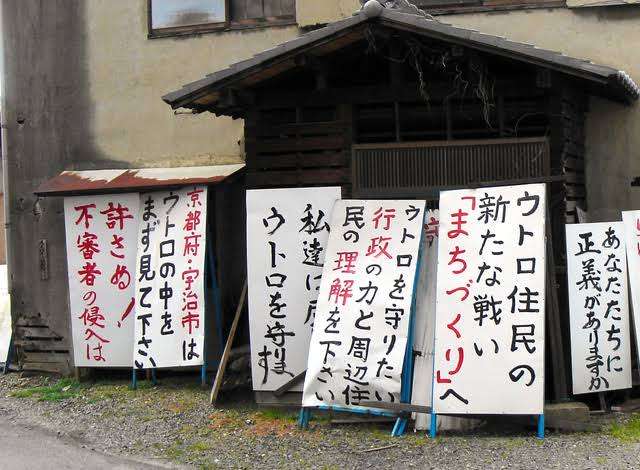 あなたたちに
正義がありますか
ウトロ住民の
新たな戦い
「まちづくり」へ
ウトロを守りたい
行政の力と周辺住
民の理解を下さい
私達は
ウトロを守ります
京都府・宇治市は
ウトロの中を
まず見て下さい
許さぬ!
不審者の侵入は